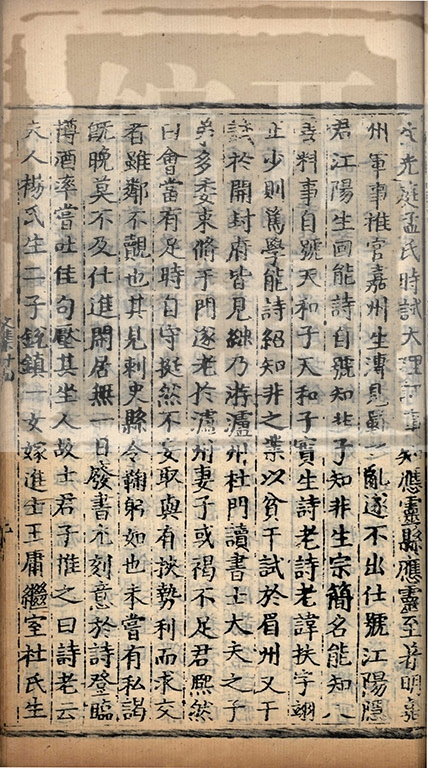 光庭孟氏時試大理評事知應靈縣應靈至著明嘉
州軍事推官嘉州生溥見蜀亂遂不出仕號江陽隱
君江陽生回能詩自號知非子知非生宗簡名能知人
喜料事自號天和子天和子實生詩老詩老諱扶字翊
正少則篤學能詩紹知非之業以貧干試於眉州又干
試於開封府皆見絀乃游瀘州杜門讀書士大夫之子
弟多委束脩于門遂老於瀘州妻子或褐不足君熙然
曰會當有足時自守挺然不妄取與有挾勢利而求交
者雖鄰不覿也其見刺史縣令鞠躬如也未嘗有私謁
既晚莫不及仕進閑居無一日廢書尤刻意於詩登臨
樽酒率嘗吐佳句壓其坐人故士君子推之曰詩老云
夫人楊氏生二子鎮一女嫁進士王庸繼室杜氏生